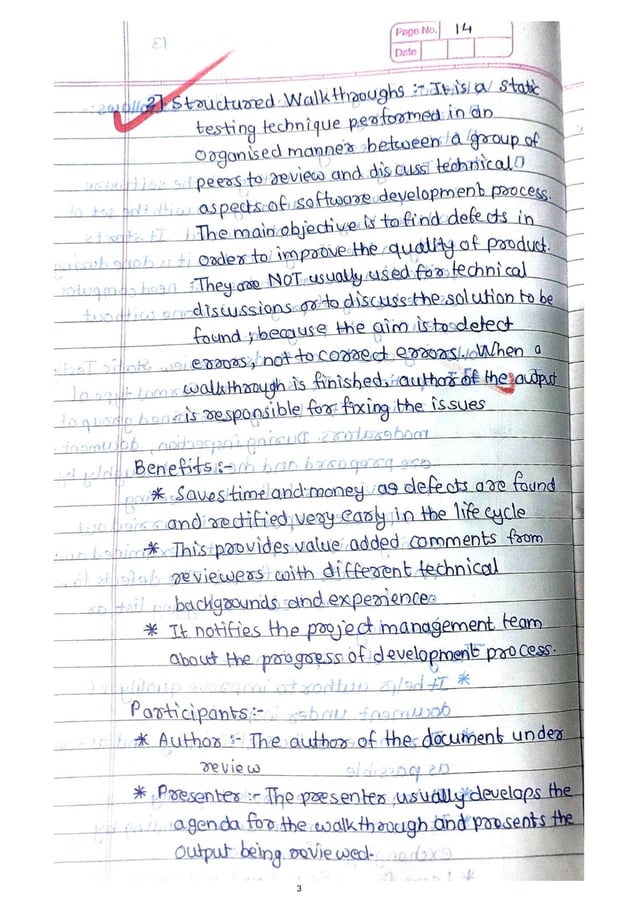 Page No. 14
Date
2] Structured Walkthroughs :- It is a static
testing technique performed in an
organised manner between a group of
peers to review and discuss technical
aspects of software development process.
The main objective is to find defects in
order to improve the quality of product.
They are NOT usually used for technical
discussions or to discuss the solution to be
found ; because the aim is to detect
errors, not to correct errors. When a
walkthrough is finished, author of the output
is responsible for fixing the issues
Benefits :-
* Saves time and money as defects are found
and rectified very early in the life cycle
* This provides value added comments from
reviewers with different technical
backgrounds and experience
* It notifies the project management team
about the progress of development process.
Participants :-
* Author :- The author of the document under
review
* Presenter :- The presenter usually develops the
agenda for the walkthrough and presents the
output being reviewed.
3